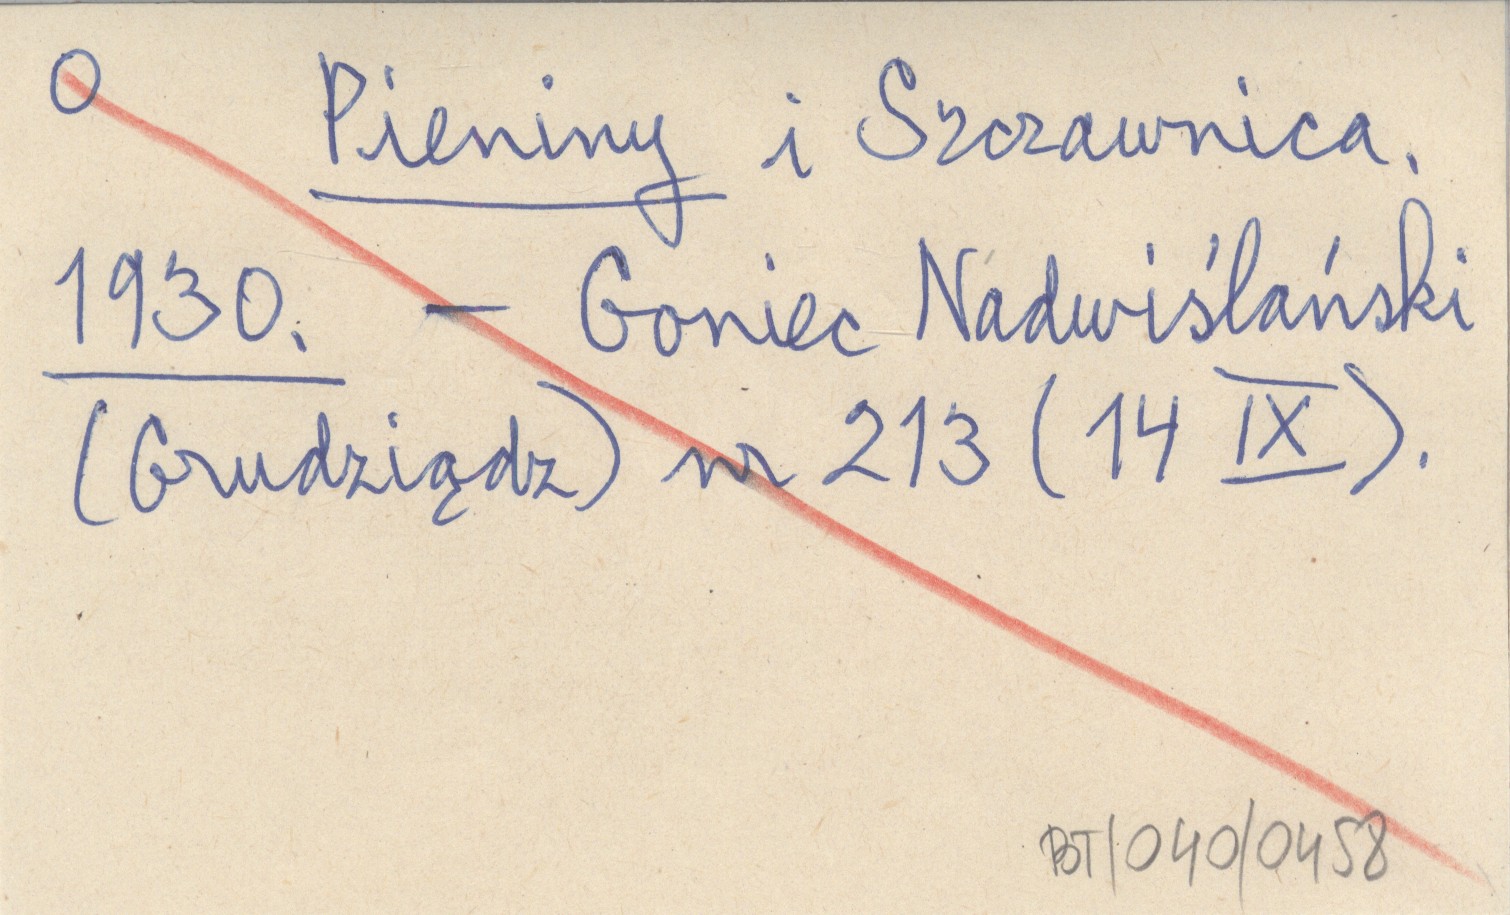 O Pieniny i Szczawnica.
1930. — Goniec Nadwiślański
(Grudziądz) nr 213 (14 IX).
BT/040/0458